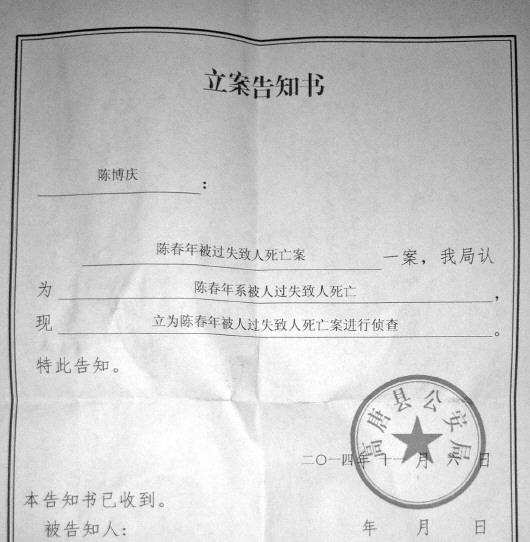 立案告知书
陈博庆：
陈春年被过失致人死亡案一案，我局认
为陈春年系被人过失致人死亡，
现立为陈春年被人过失致人死亡案进行侦查。
特此告知。
高唐县公安局
二〇一四年十一月六日
本告知书已收到。
被告知人：
年 月 日